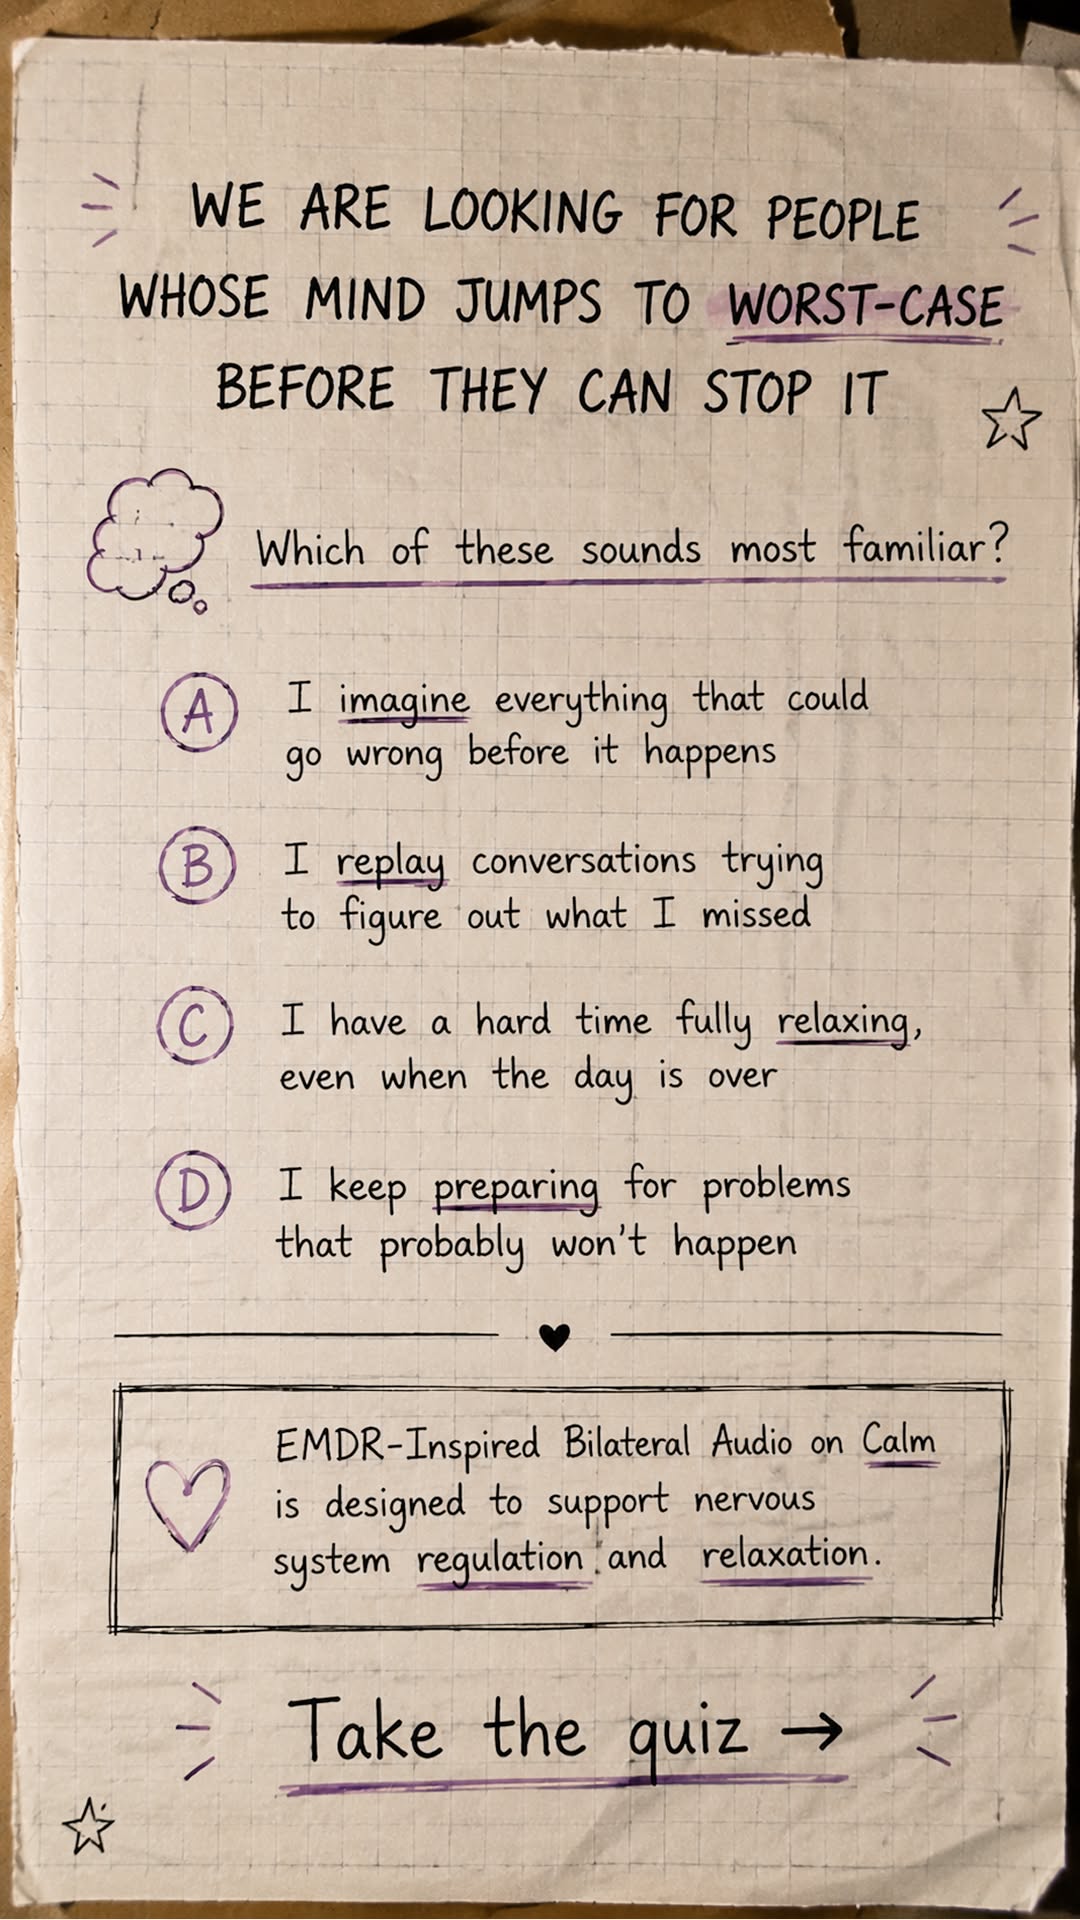 WE ARE LOOKING FOR PEOPLE
WHOSE MIND JUMPS TO WORST-CASE
BEFORE THEY CAN STOP IT
Which of these sounds most familiar?
A I imagine everything that could
go wrong before it happens
B I replay conversations trying
to figure out what I missed
C I have a hard time fully relaxing,
even when the day is over
D I keep preparing for problems
that probably won't happen
EMDR-Inspired Bilateral Audio on Calm
is designed to support nervous
system regulation and relaxation.
Take the quiz →